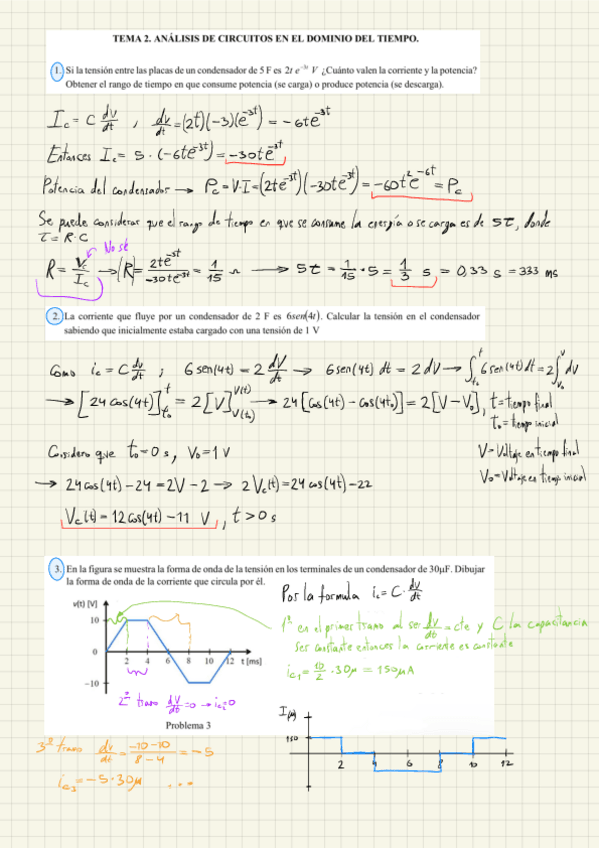 TEMA 2. ANÁLISIS DE CIRCUITOS EN EL DOMINIO DEL TIEMPO.
1. Si la tensión entre las placas de un condensador de 5 F es 2t e^-3t V ¿Cuánto valen la corriente y la potencia?
Obtener el rango de tiempo en que consume potencia (se carga) o produce potencia (se descarga).
Ic = C dv/dt , dv/dt = (2t)(-3)(e^-3t) = -6te^-3t
Entonces Ic = 5·(-6te^-3t) = -30te^-3t
Potencia del condensador → Pc = V·I = (2te^-3t)(-30te^-3t) = -60t²e^-6t = Pc
Se puede considerar que el rango de tiempo en que se consume la energía o se carga es de 5τ, donde
τ = R·C
No sé
R = Vc/Ic → |R| = 2te^-3t/-30te^-3t = 1/15 Ω → 5τ = 1/15 · 5 = 1/3 s = 0,33 s = 333 ms
2. La corriente que fluye por un condensador de 2 F es 6sen(4t). Calcular la tensión en el condensador
sabiendo que inicialmente estaba cargado con una tensión de 1 V
Como ic = C dv/dt ; 6 sen(4t) = 2 dV/dt → 6 sen(4t) dt = 2 dV → ∫t₀^t 6 sen(4t) dt = 2 ∫V₀^V dv
→ [24 cos(4t)]t₀^t = 2 [V]V(t₀)^V(t) → 24 [cos(4t) - cos(4t₀)] = 2[V - V₀], t = tiempo final
t₀ = tiempo inicial
Cosidero que t₀ = 0 s, V₀ = 1 V
V = Voltaje en tiempo final
V₀ = Voltaje en tiempo inicial
→ 24 cos(4t) - 24 = 2V - 2 → 2 Vc(t) = 24 cos(4t) - 22
Vc(t) = 12 cos(4t) - 11 V, t > 0 s
3. En la figura se muestra la forma de onda de la tensión en los terminales de un condensador de 30μF. Dibujar
la forma de onda de la corriente que circula por él.
Por la formula ic = C· dv/dt
v(t) [V]
10
0
-10
2 4 6 8 10 12 t [ms]
1º en el primer tramo al ser dv/dt = cte y C la capacitancia
ser constante entonces la corriente es constante
ic1 = 10/2 · 30μ = 150μA
2º tramo dv/dt = 0 → ic2 = 0
Problema 3
3º tramo dv/dt = -10-10/8-4 = -5
ic3 = -5·30μ ...
150
2 4 6 8 10 12